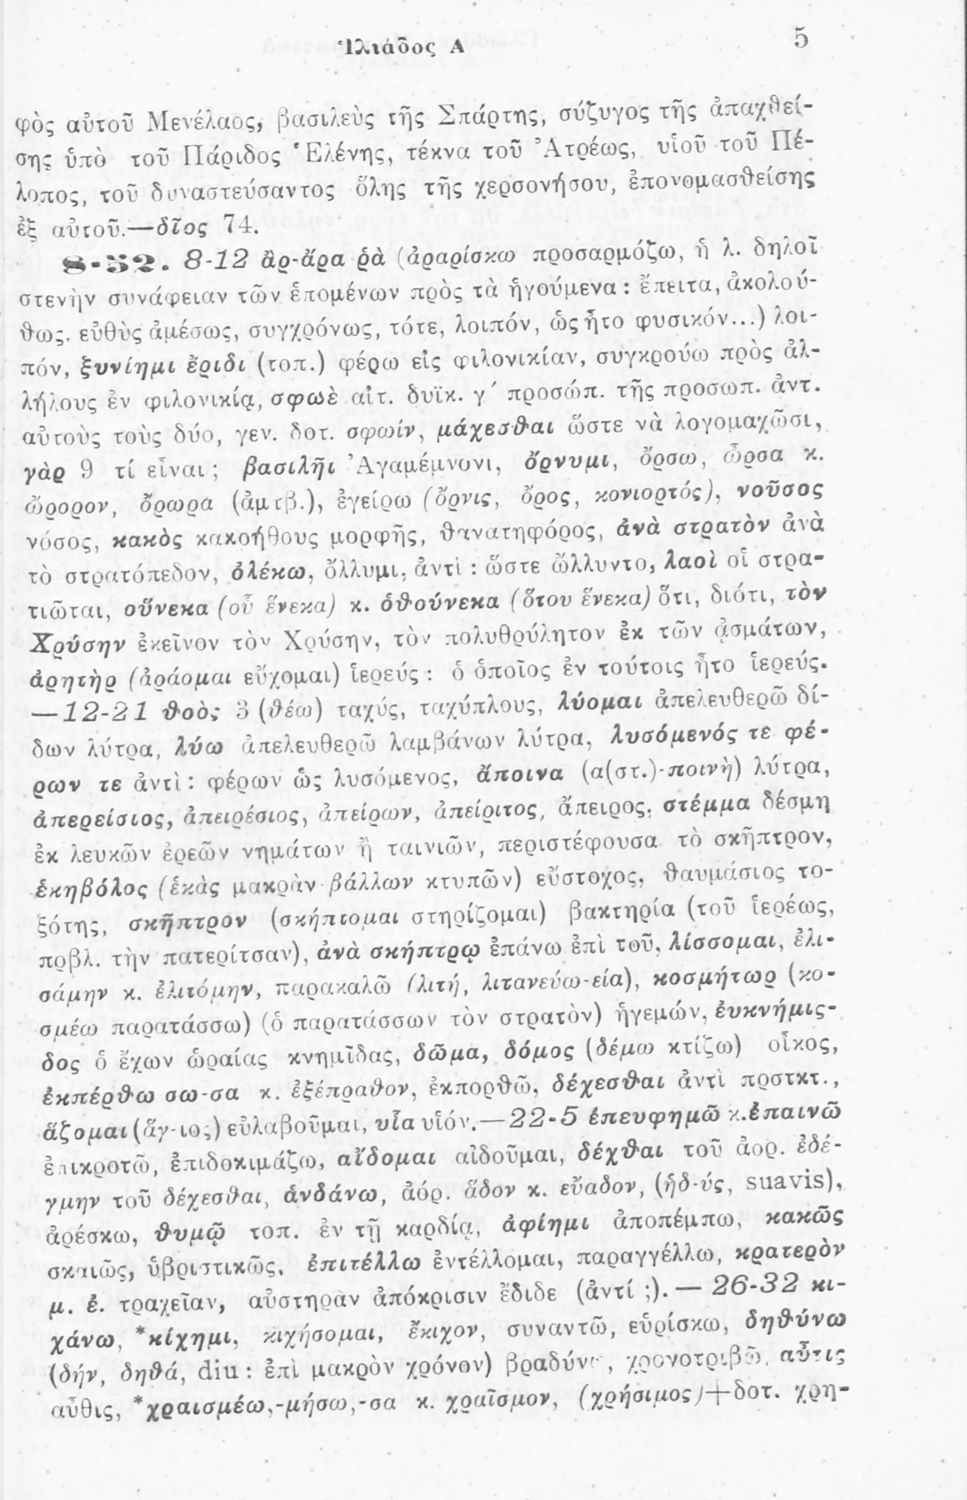 Ἰλιάδος Α 5
φὸς αὐτοῦ Μενέλαος, βασιλεὺς τῆς Σπάρτης, σύζυγος τῆς ἀπαχθεί-
σης ὑπὸ τοῦ Πάριδος Ἑλένης, τέκνα τοῦ Ἀτρέως, υἱοῦ τοῦ Πέ-
λοπος, τοῦ δυναστεύσαντος ὅλης τῆς χερσονήσου, ἐπονομασθείσης
ἐξ αὐτοῦ.—δῖος 74.
8-52. 8-12 ἂρ-ἄρα ῥὰ (ἀραρίσκω προσαρμόζω, ἡ λ. δηλοῖ
στενὴν συνάφειαν τῶν ἑπομένων πρὸς τὰ ἡγούμενα : ἔπειτα, ἀκολού-
θως. εὐθὺς ἀμέσως, συγχρόνως, τότε, λοιπόν, ὡς ἦτο φυσικόν...) λοι-
πόν, ξυνίημι ἔριδι (τοπ.) φέρω εἰς φιλονικίαν, συγκρούω πρὸς ἀλ-
λήλους ἐν φιλονικίᾳ, σφωὲ αἰτ. δυϊκ. γ΄ προσώπ. τῆς προσωπ. ἀντ.
αὐτοὺς τοὺς δύο, γεν. δοτ. σφωίν, μάχεσθαι ὥστε νὰ λογομαχῶσι,
γὰρ 9 τί εἶναι ; βασιλῆι Ἀγαμέμνονι, ὄρνυμι, ὄρσω, ὦρσα κ.
ὤρορον, ὄρωρα (ἀμτβ.), ἐγείρω (ὄρνις, ὄρος, κονιορτός), νοῦσος
νόσος, κακὸς κακοήθους μορφῆς, θανατηφόρος, ἀνὰ στρατὸν ἀνὰ
τὸ στρατόπεδον, ὀλέκω, ὄλλυμι, ἀντὶ : ὥστε ὤλλυντο, λαοὶ οἱ στρα-
τιῶται, οὕνεκα (οὗ ἕνεκα) κ. ὁθούνεκα (ὅτου ἕνεκα) ὅτι, διότι, τὸν
Χρύσην ἐκεῖνον τὸν Χρύσην, τὸν πολυθρύλητον ἐκ τῶν ᾀσμάτων,
ἀρητὴρ (ἀράομαι εὔχομαι) ἱερεύς : ὁ ὁποῖος ἐν τούτοις ἦτο ἱερεύς.
—12-21 θοὸς 3 (θέω) ταχύς, ταχύπλους, λύομαι ἀπελευθερῶ δί-
δων λύτρα, λύω ἀπελευθερῶ λαμβάνων λύτρα, λυσόμενός τε φέ-
ρων τε ἀντὶ : φέρων ὡς λυσόμενος, ἄποινα (α(στ.)-ποινὴ) λύτρα,
ἀπερείσιος, ἀπειρέσιος, ἀπείρων, ἀπείριτος, ἄπειρος, στέμμα δέσμη
ἐκ λευκῶν ἐρεῶν νημάτων ἢ ταινιῶν, περιστέφουσα τὸ σκῆπτρον,
ἑκηβόλος (ἑκὰς μακρὰν βάλλων κτυπῶν) εὔστοχος, θαυμάσιος το-
ξότης, σκῆπτρον (σκήπτομαι στηρίζομαι) βακτηρία (τοῦ ἱερέως,
πρβλ. τὴν πατερίτσαν), ἀνὰ σκήπτρῳ ἐπάνω ἐπὶ τοῦ, λίσσομαι, ἐλι-
σάμην κ. ἐλιτόμην, παρακαλῶ (λιτή, λιτανεύω-εία), κοσμήτωρ (κο-
σμέω παρατάσσω) (ὁ παρατάσσων τὸν στρατὸν) ἡγεμών, ἐυκνήμις-
δος ὁ ἔχων ὡραίας κνημῖδας, δῶμα, δόμος (δέμω κτίζω) οἶκος,
ἐκπέρθω σω-σα κ. ἐξέπραθον, ἐκπορθῶ, δέχεσθαι ἀντὶ προστκτ.,
ἅζομαι (ἅγ-ιος) εὐλαβοῦμαι, υἷα υἱόν.—22-5 ἐπευφημῶ κ. ἐπαινῶ
ἐπικροτῶ, ἐπιδοκιμάζω, αἴδομαι αἰδοῦμαι, δέχθαι τοῦ ἀορ. ἐδέ-
γμην τοῦ δέχεσθαι, ἁνδάνω, ἀόρ. ἅδον κ. εὔαδον, (ἡδ-ύς, suavis),
ἀρέσκω, θυμῷ τοπ. ἐν τῇ καρδίᾳ, ἀφίημι ἀποπέμπω, κακῶς
σκαιῶς, ὑβριστικῶς, ἐπιτέλλω ἐντέλλομαι, παραγγέλλω, κρατερὸν
μ. ἐ. τραχεῖαν, αὐστηρὰν ἀπόκρισιν ἔδιδε (ἀντί ;).— 26-32 κι-
χάνω, *κίχημι, κιχήσομαι, ἔκιχον, συναντῶ, εὑρίσκω, δηθύνω
(δήν, δηθά, diu : ἐπὶ μακρὸν χρόνον) βραδύνω, χρονοτριβῶ, αὖτις
αὖθις, *χραισμέω,-μήσω,-σα κ. χραῖσμον, (χρήσιμος)+δοτ. χρη-